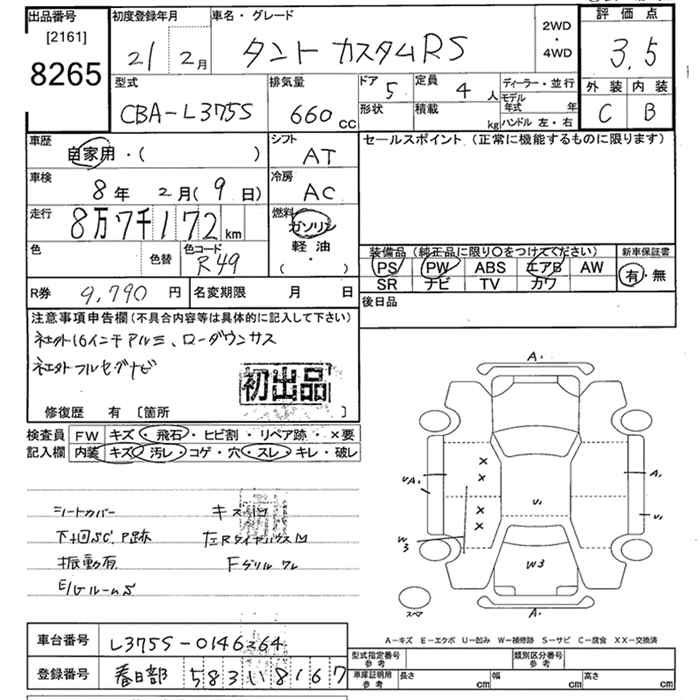 出品番号
[2161]
8265
初度登録年月
21 2月
車名・グレード
タント カスタムRS
2WD
・
4WD
評価点
3.5
外装 内装
C B
型式
CBA-L375S
排気量
660 cc
ドア 5
形状
定員 4 人
積載 kg
ディーラー・並行
モデル年式 年
ハンドル 左・右
車歴
自家用・( )
シフト
AT
車検
8年 2月(9日)
冷房
AC
走行
8万7千172km
燃料
ガソリン
軽油
( ・ )
色
色替
色コード
R49
セールスポイント (正常に機能するものに限ります)
装備品 (純正品に限り〇をつけてください)
PS PW ABS エアB AW
SR ナビ TV カワ
新車保証書
有・無
R券 9,790 円
名変期限 月 日
後日品
注意事項申告欄 (不具合内容等は具体的に記入して下さい)
社外16インチアルミ、ローダウンサス
社外フルセグナビ
初出品
修復歴 有 [箇所 ]
検査員記入欄
FW キズ・飛石・ヒビ割・リペア跡・×要
内装 キズ・汚レ・コゲ・穴・スレ・キレ・破レ
シートカバー
下廻SC、P跡
振動有
E/Gルーム S
左Rタイヤハウス M
Fグリル ワレ
A・
A・
A1
U1
U1
W3
W3
スペア
A-キズ E-エクボ U-凹み W-補修跡 S-サビ C-腐食 XX-交換済
車台番号
L375S-0146264
登録番号
春日部 583 い 8167
型式指定番号
参考
類別区分番号
参考
車庫証明用
参考
長さ cm 幅 cm 高さ cm